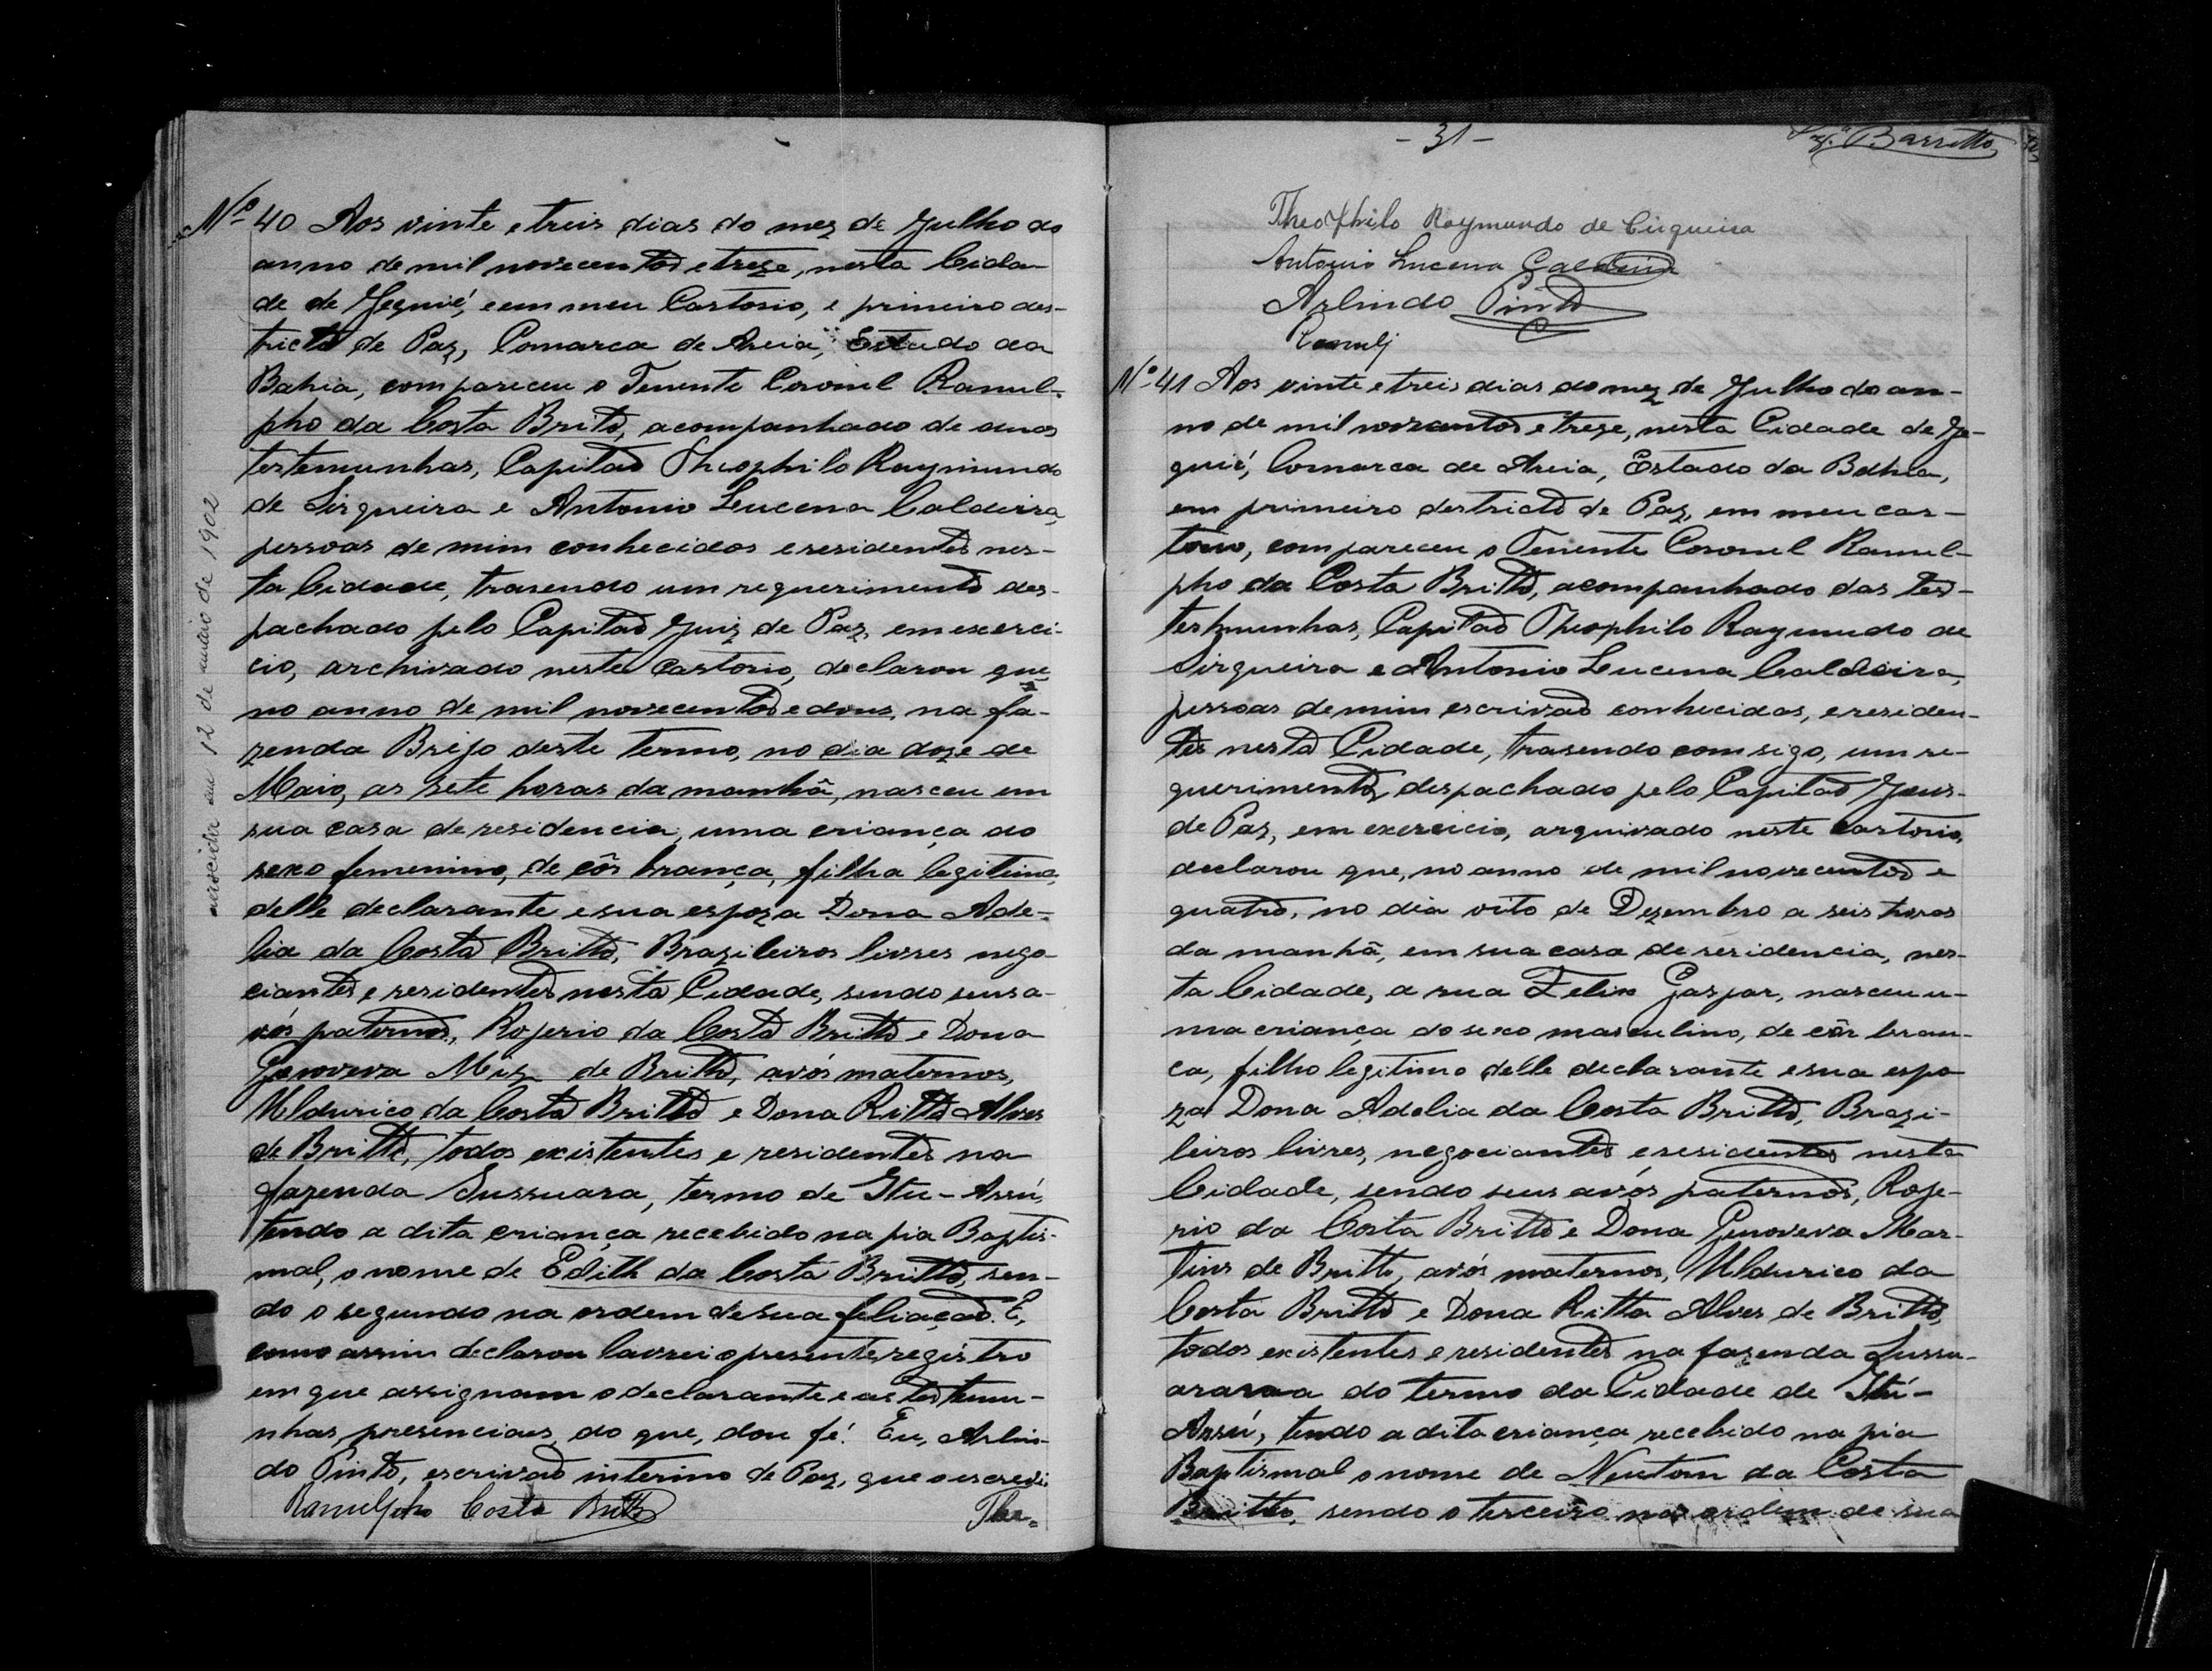 nascida em 12 de maio de 1902
Nº 40 Aos vinte e treis dias do mez de Julho do
anno de mil novecentos e treze, nesta Cida-
de de Jequié, e em meu Cartorio, e primeiro des-
tricto de Paz, Comarca de Areia, Estado da
Bahia, compareceu o Tenente Coronel Ranul-
pho da Costa Brito, acompanhado de duas
testemunhas, Capitão Theophilo Raymundo
de Sirqueira e Antonio Lucena Caldeira,
pessoas de mim conhecidos e residentes nes-
ta Cidade, trasendo um requerimento des-
pachado pelo Capitão Juiz de Paz, em exerci-
cio, archivado neste Cartorio, declarou que
no anno de mil novecentos e dous, na fa-
zenda Brejo deste termo, no dia doze de
Maio, as sete horas da manhã, nasceu em
sua casa de residencia, uma criança do
sexo femenino, de côr branca, filha legitima,
delle declarante e sua espoza Dona Ade-
lia da Costa Britto, Brazileiros livres nego-
ciantes e residentes nesta Cidade, sendo seus a-
vós paternos, Rogerio da Costa Britto e Dona
Genoveva de Britto, avós maternos,
Uldurico da Costa Britto e Dona Ritta Alves
de Britto, todos existentes e residentes na
fazenda Sussuara, termo de Itu-Assú,
tendo a dita criança recebido na pia Baptis-
mal, o nome de Edith da Costa Britto, sen-
do o segundo na ordem de sua filiação. E,
como assim declarou lavrei o presente registro
em que assignam o declarante e as testemu-
nhas presenciaes, do que, dou fé. Eu, Arlin-
do Pinto, escrivão interino de Paz, que o escrevi
Ranulpho Costa Britto
The-
- 31 -
Barretto
Theophilo Raymundo de Cirqueira
Antonio Lucena Caldeira
Arlindo Pinto
Nº 41 Aos vinte e treis dias do mez de Julho do an-
no de mil novecentos e treze, nesta Cidade de Je-
quié, Comarca de Areia, Estado da Bahia,
em primeiro destricto de Paz, em meu car-
torio, compareceu o Tenente Coronel Ranul-
pho da Costa Britto, acompanhado das tes-
testmunhas, Capitão Theophilo Raymundo de
Sirqueira e Antonio Lucena Caldeira,
pessoas de mim escrivão conhecidas, e residen-
tes nesta Cidade, trasendo comsigo, um re-
querimento, despachado pelo Capitão
de Paz, em exercicio, arquivado neste cartorio,
declarou que, no anno de mil novecentos e
quatro, no dia oito de Dezembro a seis horas
da manhã, em sua casa de residencia, nes-
ta Cidade, a rua Felix Gaspar, nasceu u-
ma criança do sexo masculino, de côr bran-
ca, filho legitimo delle declarante e sua espo-
za Dona Adelia da Costa Britto, Brazi-
leiros livres, negociantes e residentes nesta
Cidade, sendo seus avós paternos, Roge-
rio da Costa Britto e Dona Genoveva Mar-
tins de Britto, avós maternos, Uldurico da
Costa Britto e Dona Ritta Alves de Britto,
todos existentes e residentes na fazenda Sussu-
do termo da Cidade de Itú-
Assú, tendo a dita criança recebido na pia
Baptismal o nome de Newtom da Costa
Britto, sendo o terceiro na ordem de sua